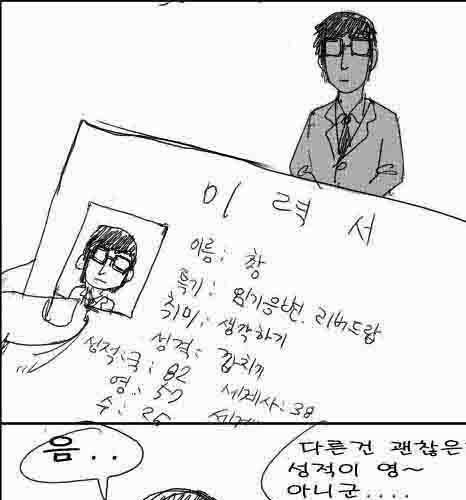 이 력 서
이름: 창
특기: 임기응변. 리버드랍
취미: 생각하기
성격: 깝치기
성적:국: 82
영: 50 세계사: 38
수: 26
음..
다른건 괜찮은
성적이 영~
아니군....